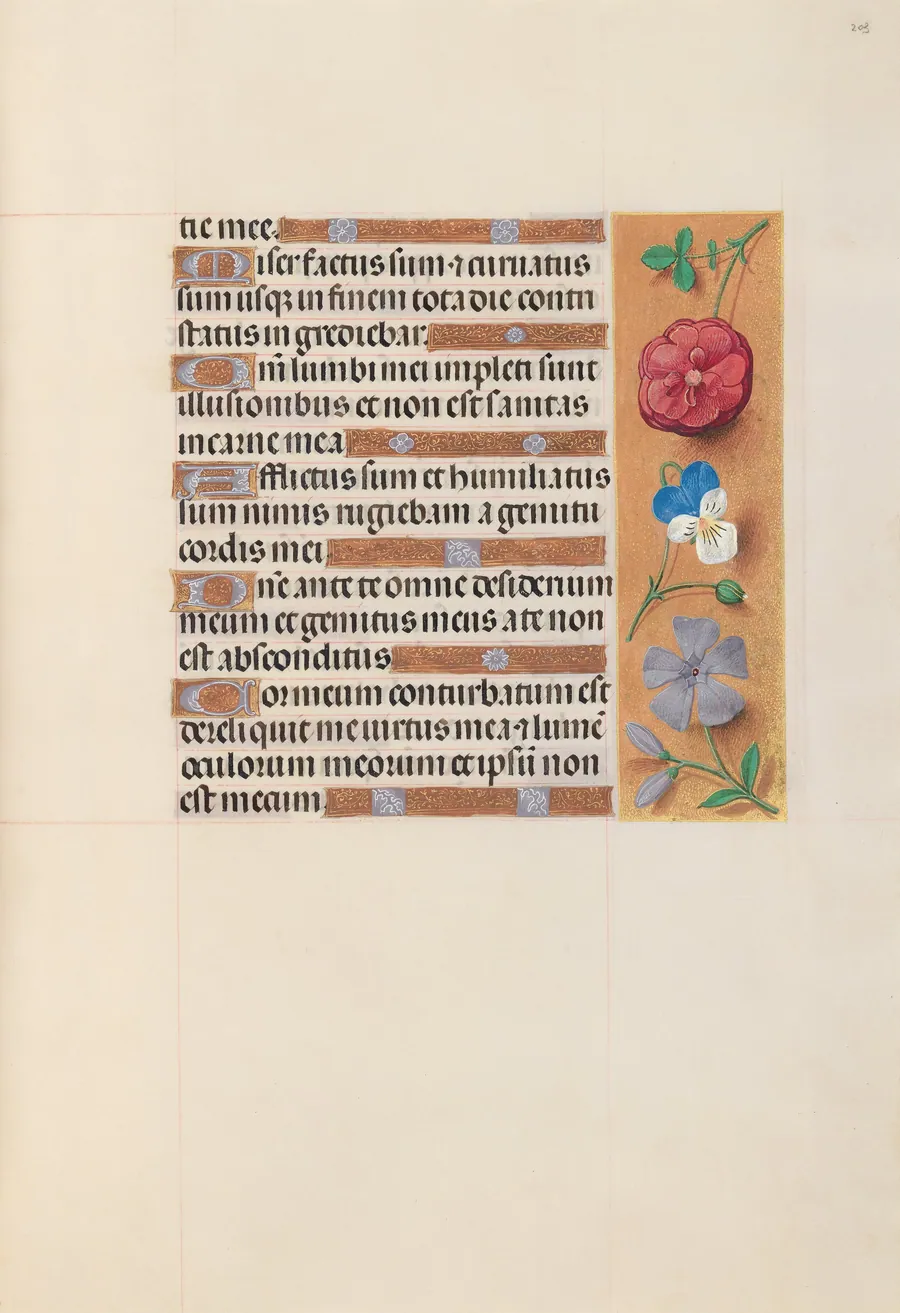 209
tie mee.
Miser factus sum ⁊ curuatus
sum usqȝ in finem tota die contri
status in grediebar.
Qm̄ lumbi mei impleti sunt
illusionibus et non est sanitas
in carne mea
Afflictus sum et humiliatus
sum nimis rugiebam a gemitu
cordis mei
Dn̄e ante te omne desiderium
meum et gemitus meus a te non
est absconditus
Cor meum conturbatum est
dereliquit me uirtus mea ⁊ lumē
oculorum meorum et ipsū non
est mecum.